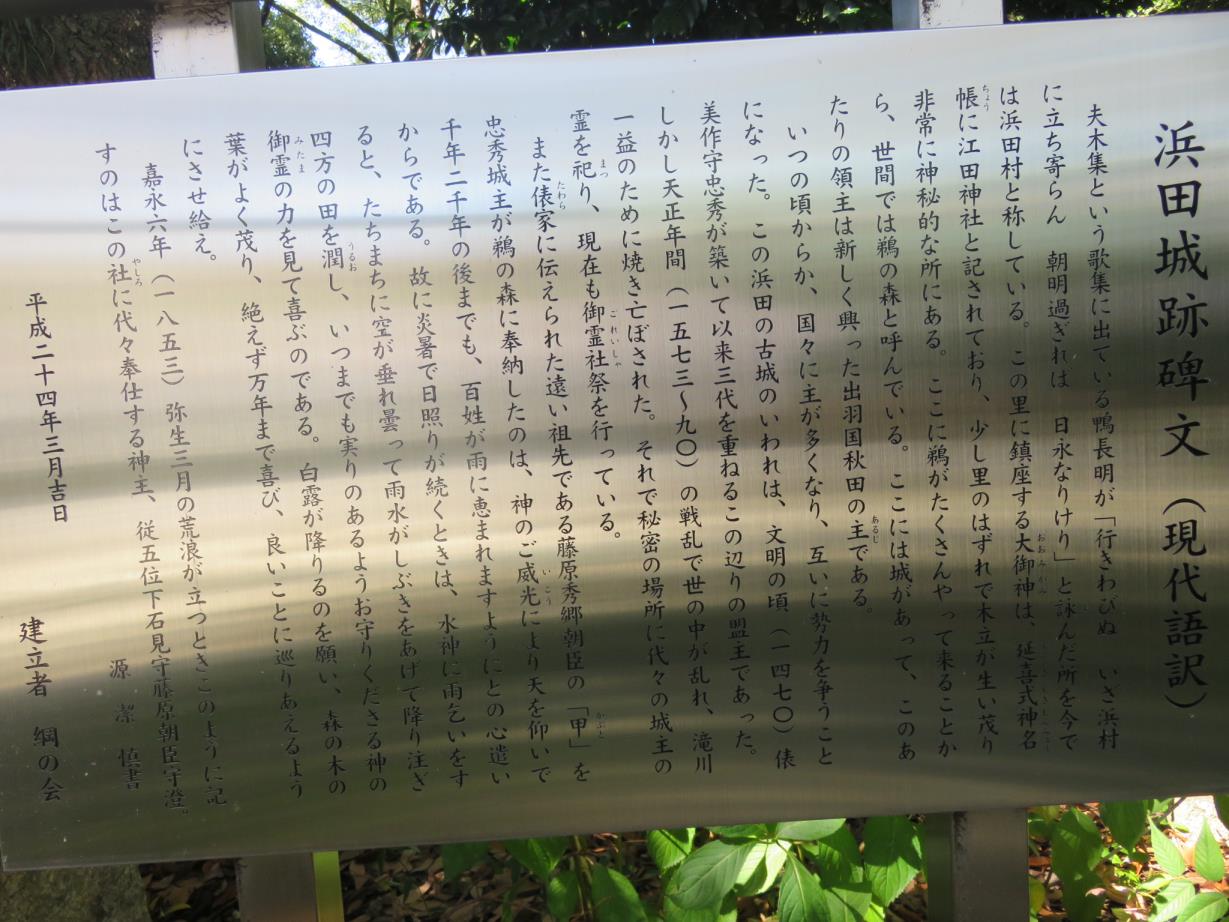 浜田城跡碑文（現代語訳）
夫木集という歌集に出ている鴨長明が「行きわびぬ　いざ浜村
に立ち寄らん　朝明過ぎれは　日永なりけり」と詠んだ所を今で
は浜田村と称している。この里に鎮座する大御神は、延喜式神名
帳に江田神社と記されており、少し里のはずれで木立が生い茂り
非常に神秘的な所にある。ここに鵜がたくさんやって来ることか
ら、世間では鵜の森と呼んでいる。ここには城があって、このあ
たりの領主は新しく興った出羽国秋田の主である。
いつの頃からか、国々に主が多くなり、互いに勢力を争うこと
になった。この浜田の古城のいわれは、文明の頃（一四七〇）俵
美作守忠秀が築いて以来三代を重ねるこの辺りの盟主であった。
しかし天正年間（一五七三～九〇）の戦乱で世の中が乱れ、滝川
一益のために焼き亡ぼされた。それで秘密の場所に代々の城主の
霊を祀り、現在も御霊社祭を行っている。
また俵家に伝えられた遠い祖先である藤原秀郷朝臣の「甲」を
忠秀城主が鵜の森に奉納したのは、神のご威光により天を仰いで
千年二千年の後までも、百姓が雨に恵まれますようにとの心遣い
からである。故に炎暑で日照りが続くときは、水神に雨乞いをす
ると、たちまちに空が垂れ曇って雨水がしぶきをあげて降り注ぎ
四方の田を潤し、いつまでも実りのあるようお守りくださる神の
御霊の力を見て喜ぶのである。白露が降りるのを願い、森の木の
葉がよく茂り、絶えず万年まで喜び、良いことに巡りあえるよう
にさせ給え。
嘉永六年（一八五三）弥生三月の荒浪が立つときこのように記
すのはこの社に代々奉仕する神主、従五位下石見守藤原朝臣守澄。
源　潔　慎書
平成二十四年三月吉日　　建立者　綱の会